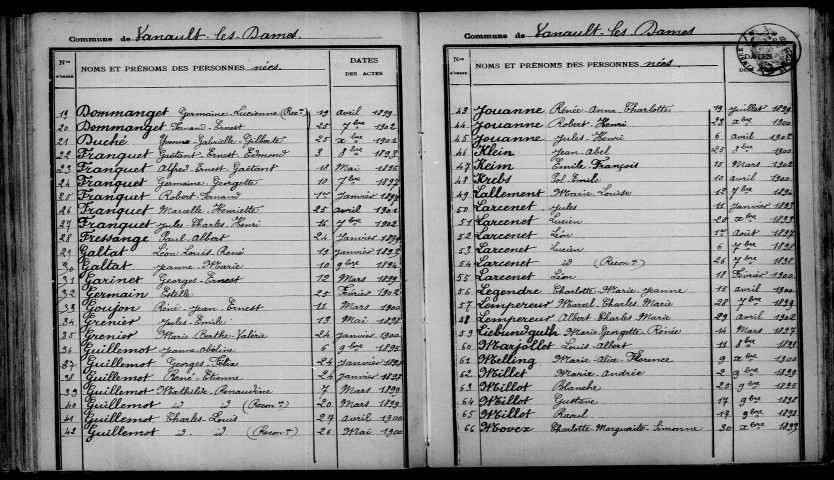 Commune de Vanault-les-Dames
Nos D'ORDRE NOMS ET PRÉNOMS DES PERSONNES nées. DATES DES ACTES
19 Dommanget Germaine-Lucienne (Recon) 19 avril 1899
20 Dommanget Fernand-Ernest 25 7bre 1902
21 Duché Yvonne-Gabrielle-Gilberte 25 xbre 1901
22 Franquet Gaëtant-Ernest-Edmond 3 8bre 1893
23 Franquet Alfred-Ernest-Gaëtant 18 Mai 1895
24 Franquet Germaine-Georgette 10 7bre 1897
25 Franquet Robert-Fernand 1er Janvier
26 Franquet Marcelle-Henriette 25 avril 1901
27 Franquet Jules-Charles-Henri 16 7bre 1902
28 Fressange Paul-Albert 24 Janvier
29 Galtat Léon-Louis-René 19 Janvier 1893
30 Galtat Jeanne-Marie 10 9bre 1894
31 Garinet Georges-Ernest 12 Mars 1899
32 Germain Estelle 25 Février 1902
33 Goujon René-Jean-Ernest 11 Mars 1900
34 Grenier Jules-Emile 13 Mai 1898
35 Grenier Marie-Berthe-Valérie 24 Janvier 1900
36 Guillemot Jeanne 6 9bre 1895
37 Guillemot Georges-Félix 24 Janvier
38 Guillemot René-Etienne 24 Janvier
39 Guillemot Mathilde-Renaudine 7 Mars 1899
40 Guillemot id id (Recon) 20 Mars 1899
41 Guillemot Charles-Louis 27 avril 1900
42 Guillemot id id (Recon) 26 Mai 1900
Commune de Vanault-les-Dames
Nos D'ORDRE NOMS ET PRÉNOMS DES PERSONNES nées. DATES DES ACTES
43 Jouanne Renée-Anna-Charlotte 19 Juillet 1899
44 Jouanne Robert-Henri 23 xbre 1900
45 Jouanne Jules-Henri 6 avril 1902
46 Klein Jean-Abel 25 8bre 1900
47 Keim Emile-François 15 Mars 1902
48 Krebs Pol-Emile 10 avril 1900
49 Lallement Marie-Louise 12 7bre 1894
50 Larcenet Jules 11 Janvier 1893
51 Larcenet Lucien 20 xbre 1893
52 Larcenet Léon 1er Août 1897
53 Larcenet Lucien 6 7bre 1898
54 Larcenet id (Recon) 26 7bre 1898
55 Larcenet Léon 18 Février 1900
56 Legendre Charlotte-Marie-Jeanne 15 avril 1900
57 Lempereur Marcel-Charles-Marie 28 7bre 1899
58 Lempereur Albert-Charles-Marie 29 avril 1902
59 Liebundguth Marie-Georgette-Renée 14 Mars 1897
60 Marjollet Louis-Albert 11 8bre 1898
61 Melling Marie-Alice-Florence 9 xbre 1900
62 Millet Marie-Andrée 2 9bre 1899
63 Millot Blanche 22 9bre 1895
64 Millot Gustave 17 9bre 1898
65 Millot Raoul 17 9bre 1898
66 Charlotte-Marguerite-Simonne 30 xbre 1899